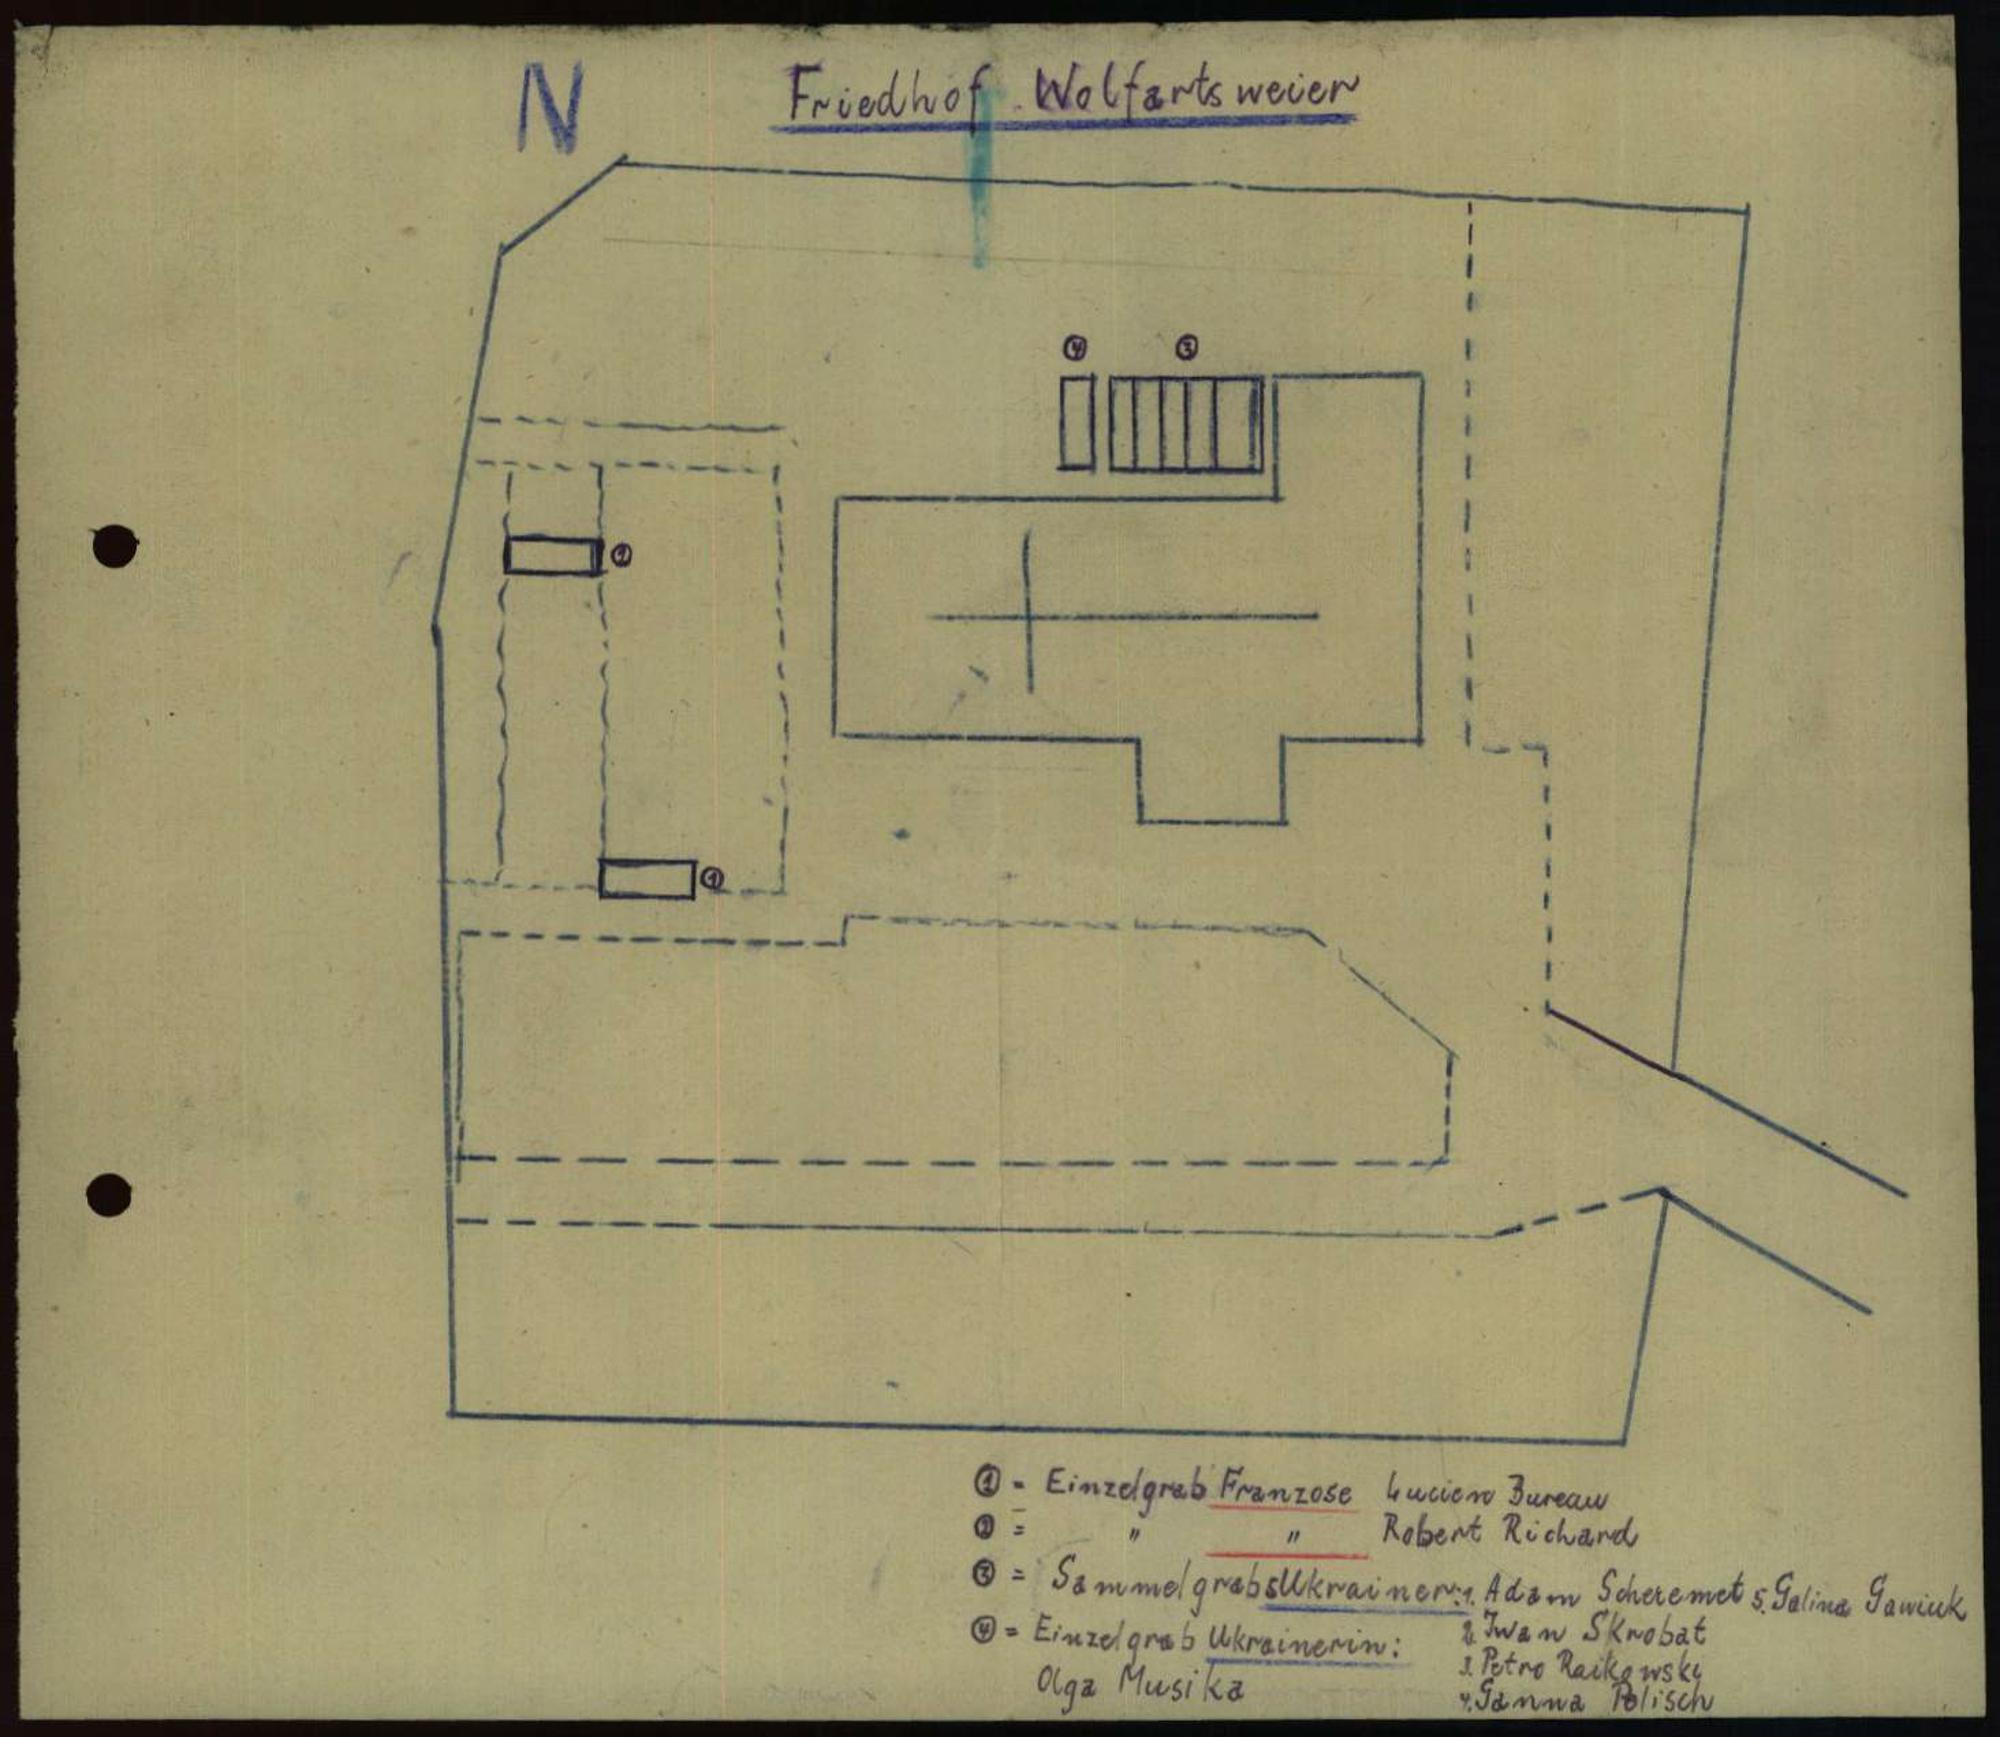 N
Friedhof Wolfartsweier
④ ③
②
①
① = Einzelgrab Franzose Lucien Bureau
② = " " Robert Richard
③ = Sammelgrab 5 Ukrainer: 1. Adam Scheremet 5. Galina Gawiuk
2. Iwan Skrobat
④ = Einzelgrab Ukrainerin:
3. Petro Raikowski
Olga Musika
4. Ganna Polisch